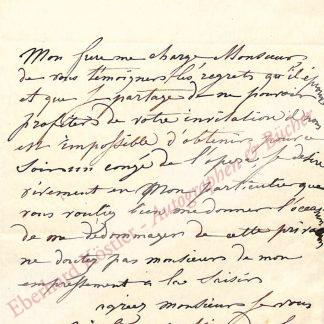 Mon frere me charge Monsieur
de vous témoigner les regrets qu'il éprouve
et que je partage de ne pouvoir
profiter de votre invitation il nous
est impossible d'obtenir pour ce
soir un congé de l'opera je desire
vivement en Mon particulier que
vous vouliez bien me donner l'occasion
de me dédommager de cette privation
ne doutez pas monsieur de mon
empressement a la saisir
agréez monsieur je vous
Eberhard Köstler - Autographen & Bücher